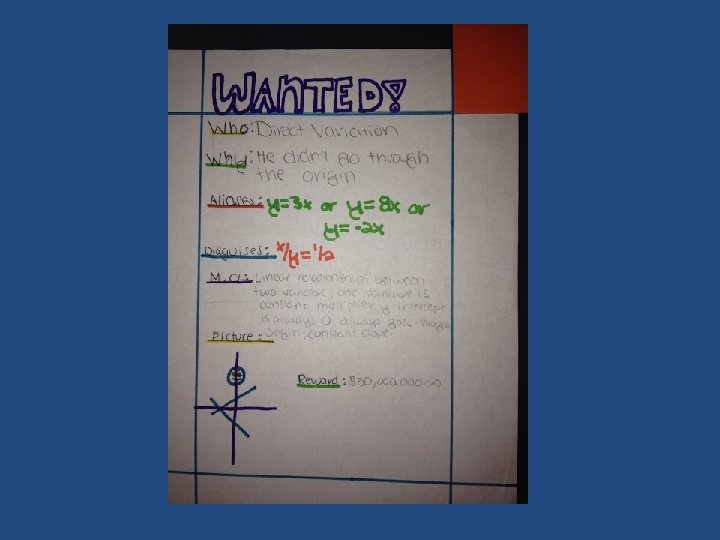 WANTED!
Who: Direct Variation
Why: He didn't go through
the origin
Aliases: y=3x or y=8x or
y=-2x
Disguises: x/y=1/2
M.O.: Linear relationships between
two variable, one variable is
constant multiplier, y-intercept
is always 0. always goes through
origin, constant slope.
Picture:
Reward: $50,000,000.00